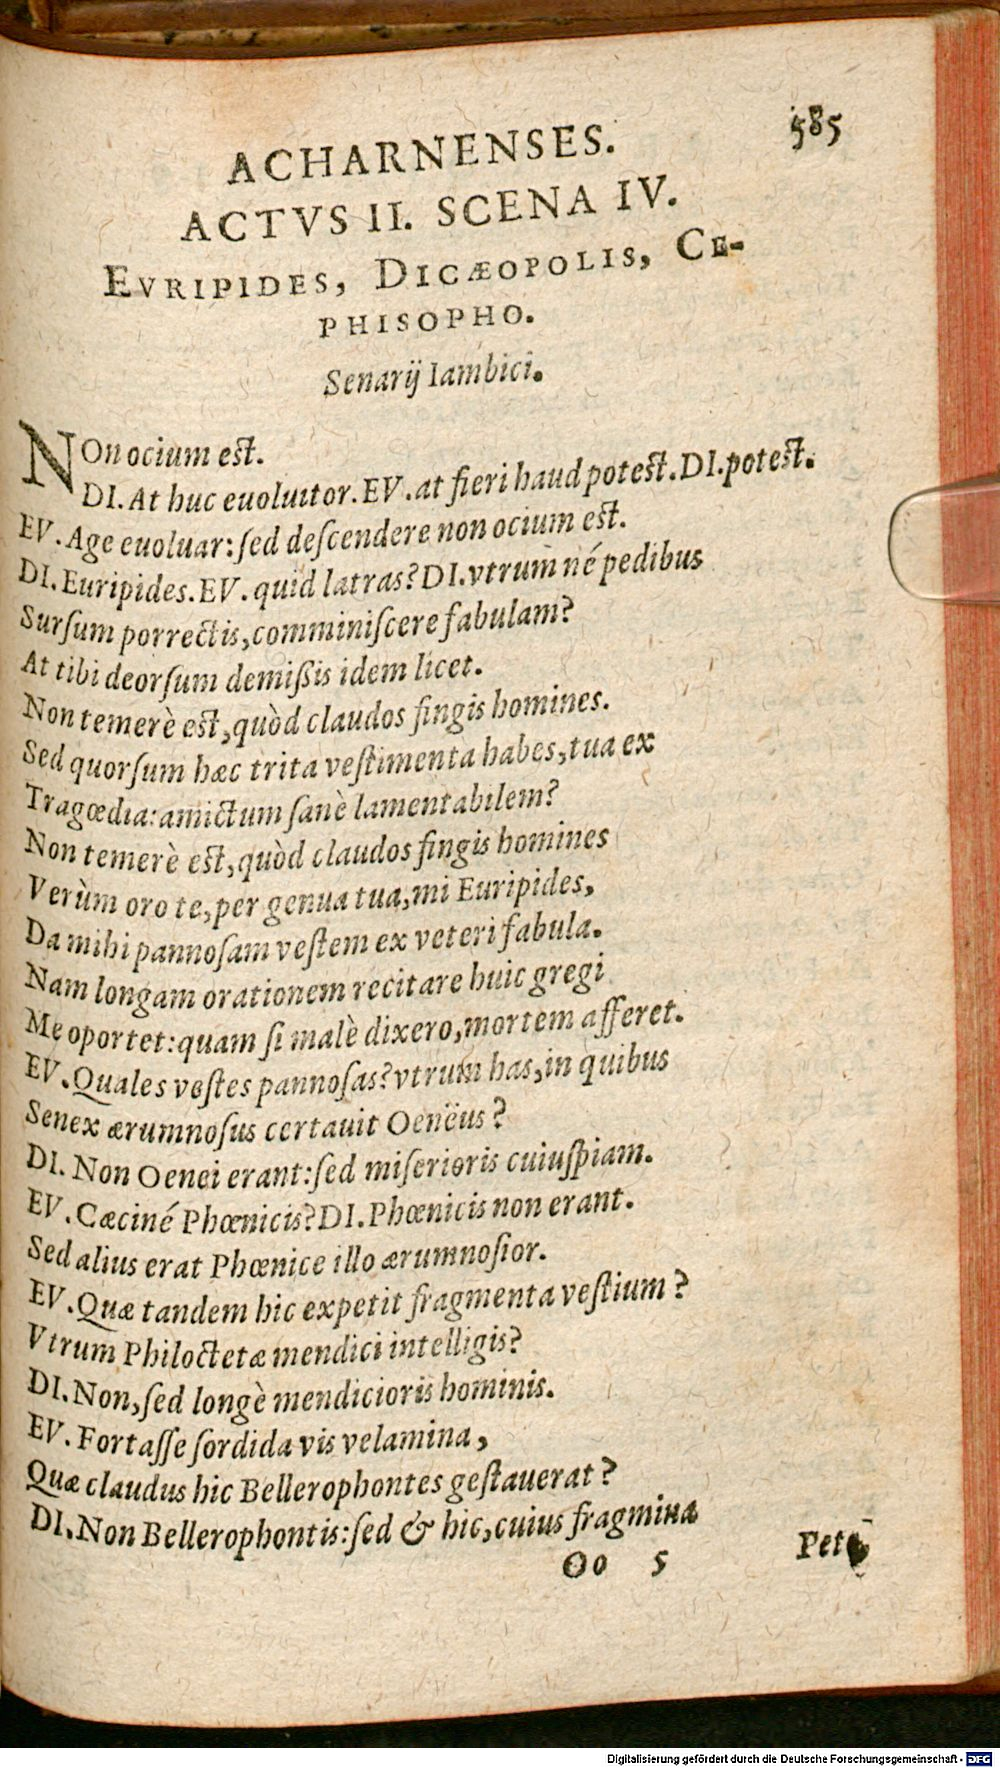 585
ACHARNENSES.
ACTVS II. SCENA IV.
EVRIPIDES, DICÆOPOLIS, CE-
PHISOPHO.
Senarij Iambici.
NOn ocium est.
DI. At huc euoluitor. EV. at fieri haud potest. DI. potest.
EV. Age euoluar: sed descendere non ocium est.
DI. Euripides. EV. quid latras? DI. vtrum né pedibus
Sursum porrectis, comminiscere fabulam?
At tibi deorsum demißis idem licet.
Non temerè est, quòd claudos fingis homines.
Sed quorsum hæc trita vestimenta habes, tua ex
Tragœdia: amictum sanè lamentabilem?
Non temerè est, quòd claudos fingis homines
Verùm oro te, per genua tua, mi Euripides,
Da mihi pannosam vestem ex veteri fabula.
Nam longam orationem recitare huic gregi
Me oportet: quam si malè dixero, mortem afferet.
EV. Quales vestes pannosas? vtrum has, in quibus
Senex ærumnosus certauit Oenëus?
DI. Non Oenei erant: sed miserioris cuiuspiam.
EV. Cæciné Phœnicis? DI. Phœnicis non erant.
Sed alius erat Phœnice illo ærumnosior.
EV. Quæ tandem hic expetit fragmenta vestium?
Vtrum Philoctetæ mendici intelligis?
DI. Non, sed longè mendicioris hominis.
EV. Fortasse sordida vis velamina,
Quæ claudus hic Bellerophontes gestauerat?
DI. Non Bellerophontis: sed & hic, cuius fragmina
Oo 5
Digitalisierung gefördert durch die Deutsche Forschungsgemeinschaft - DFG